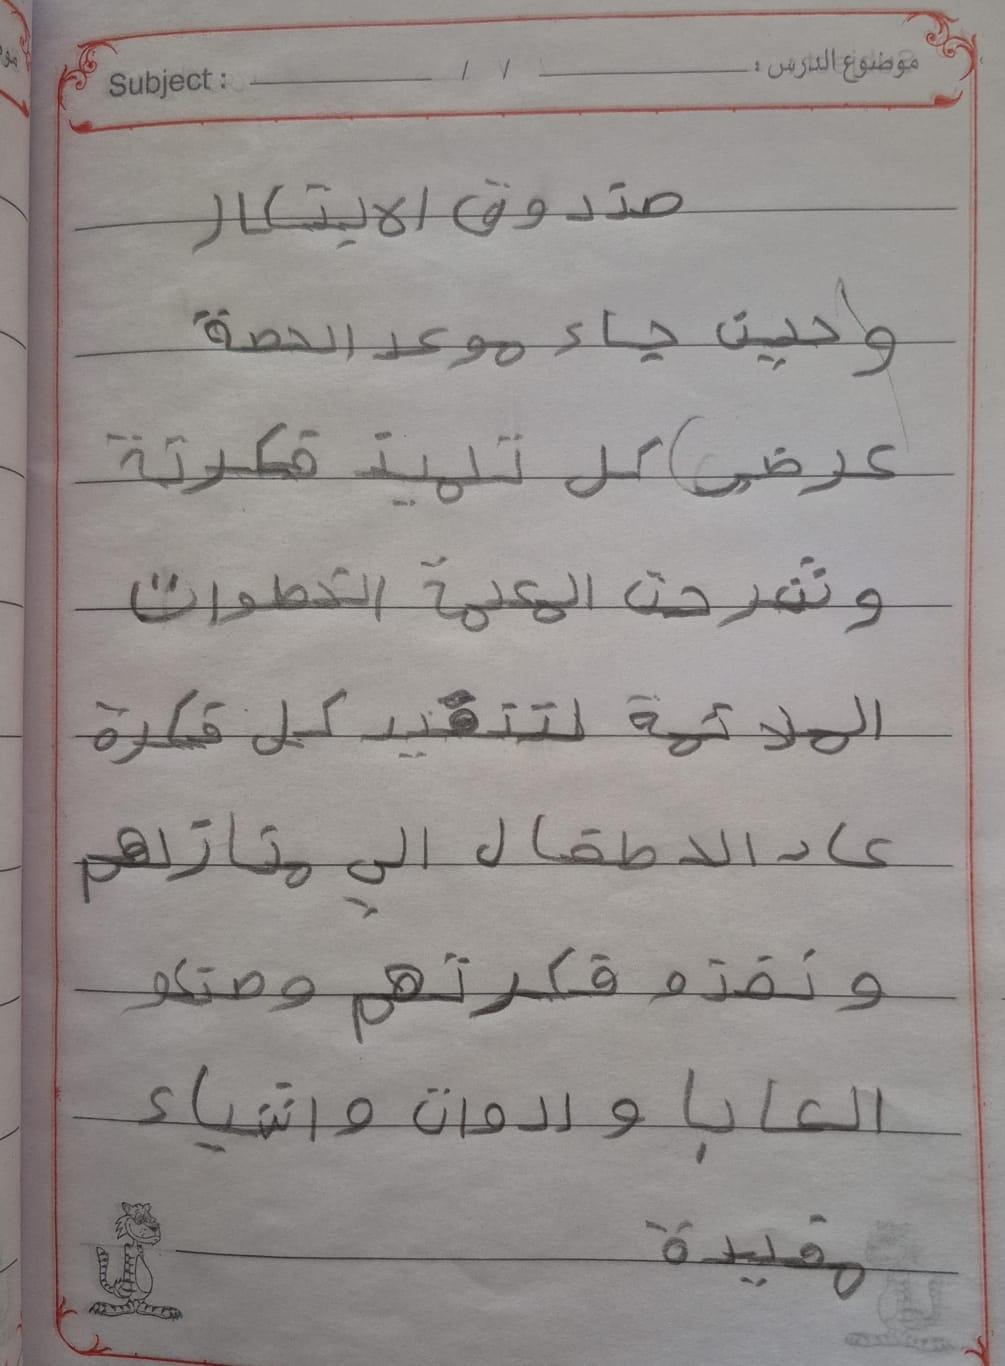 Subject : / / موضوع الدرس :
صندوق الابتكار
وحين جاء موعد الحصة
عرض كل تلميذ فكرتة
وشرحت المعلمة الخطوات
الملائمة لتنفيد كل فكرة
عاد الاطفال الي منازلهم
ونفذه فكرتهم وصنعو
العابا وادوات واشياء
مفيدة